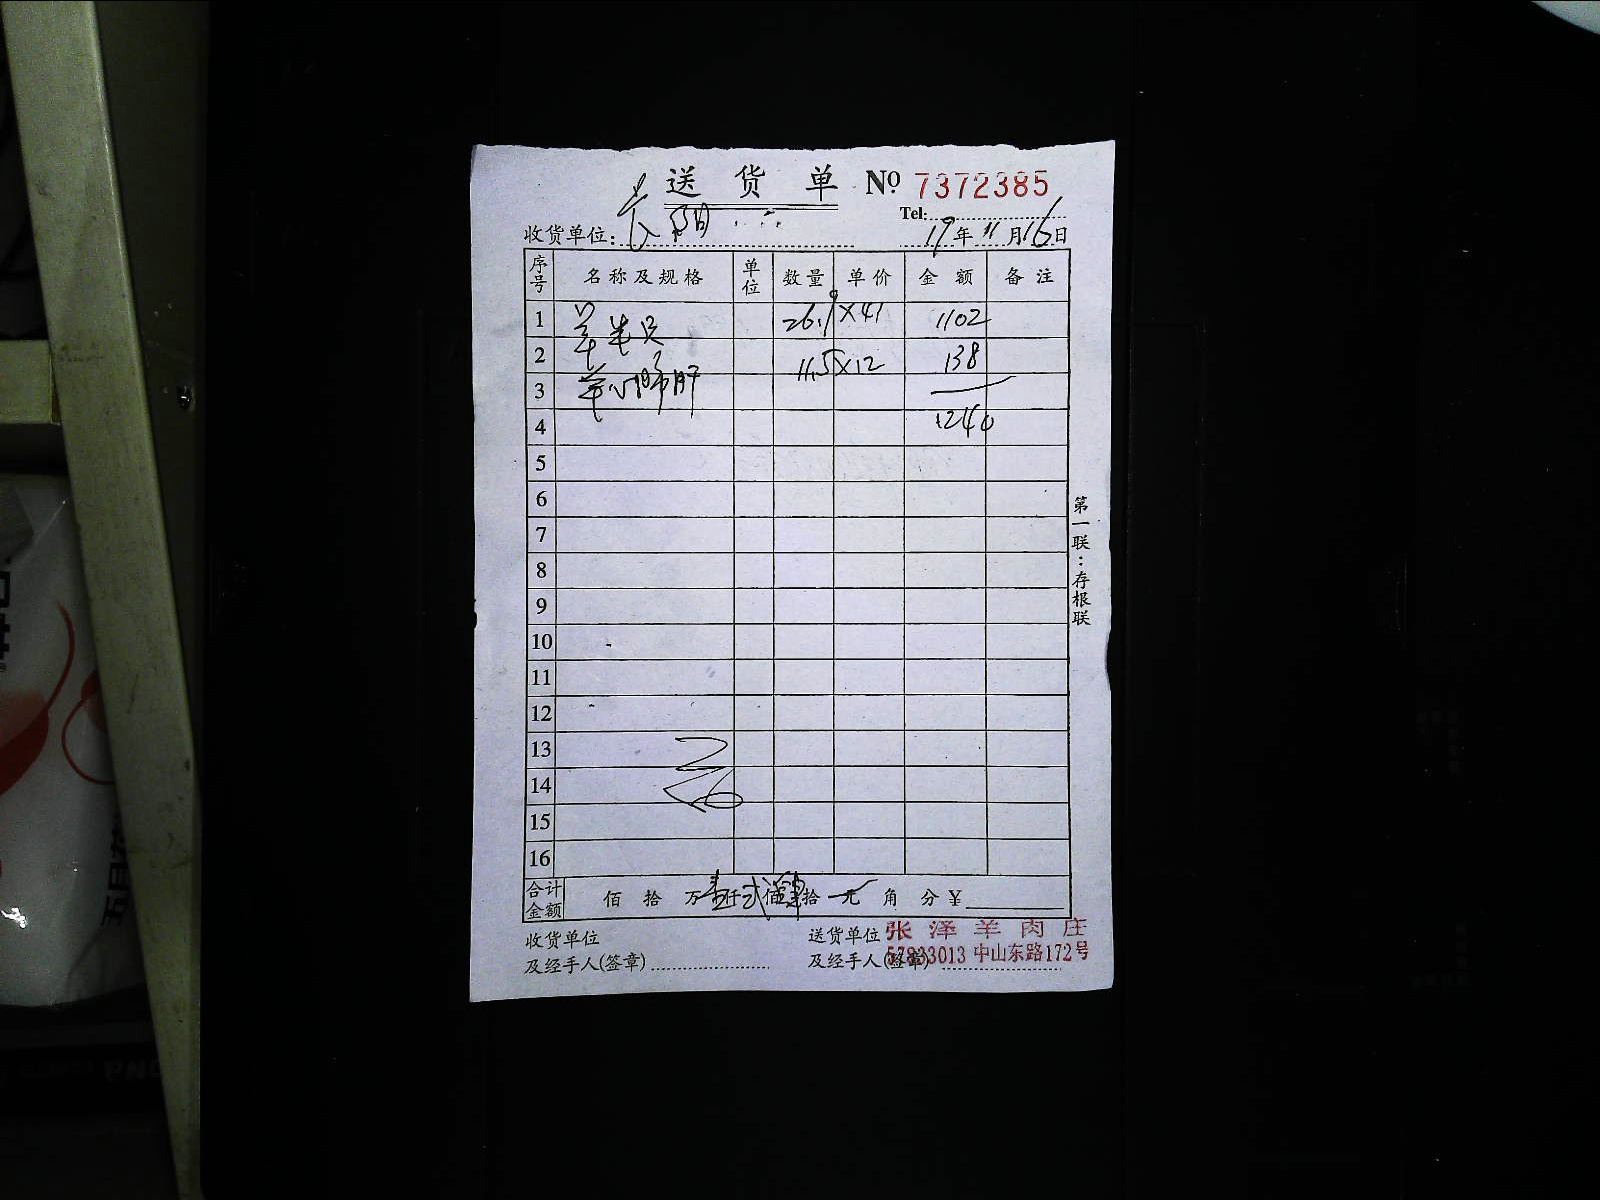 送货单 № 7372385
Tel:
收货单位: 19年11月16日
序号 名称及规格 单位 数量 单价 金额 备注
1 羊半只 26.9×41 1102
2 羊心肺肝 11.5×12 138
3
4 1240
5
6
7
8
9
10
11
12
13
14
15
16
合计金额 佰 拾 万 壹仟 弍佰 肆拾 元 角 分 ¥
第一联:存根联
收货单位 送货单位 张泽羊肉庄
及经手人(签章) 及经手人(签章) 57833013 中山东路172号